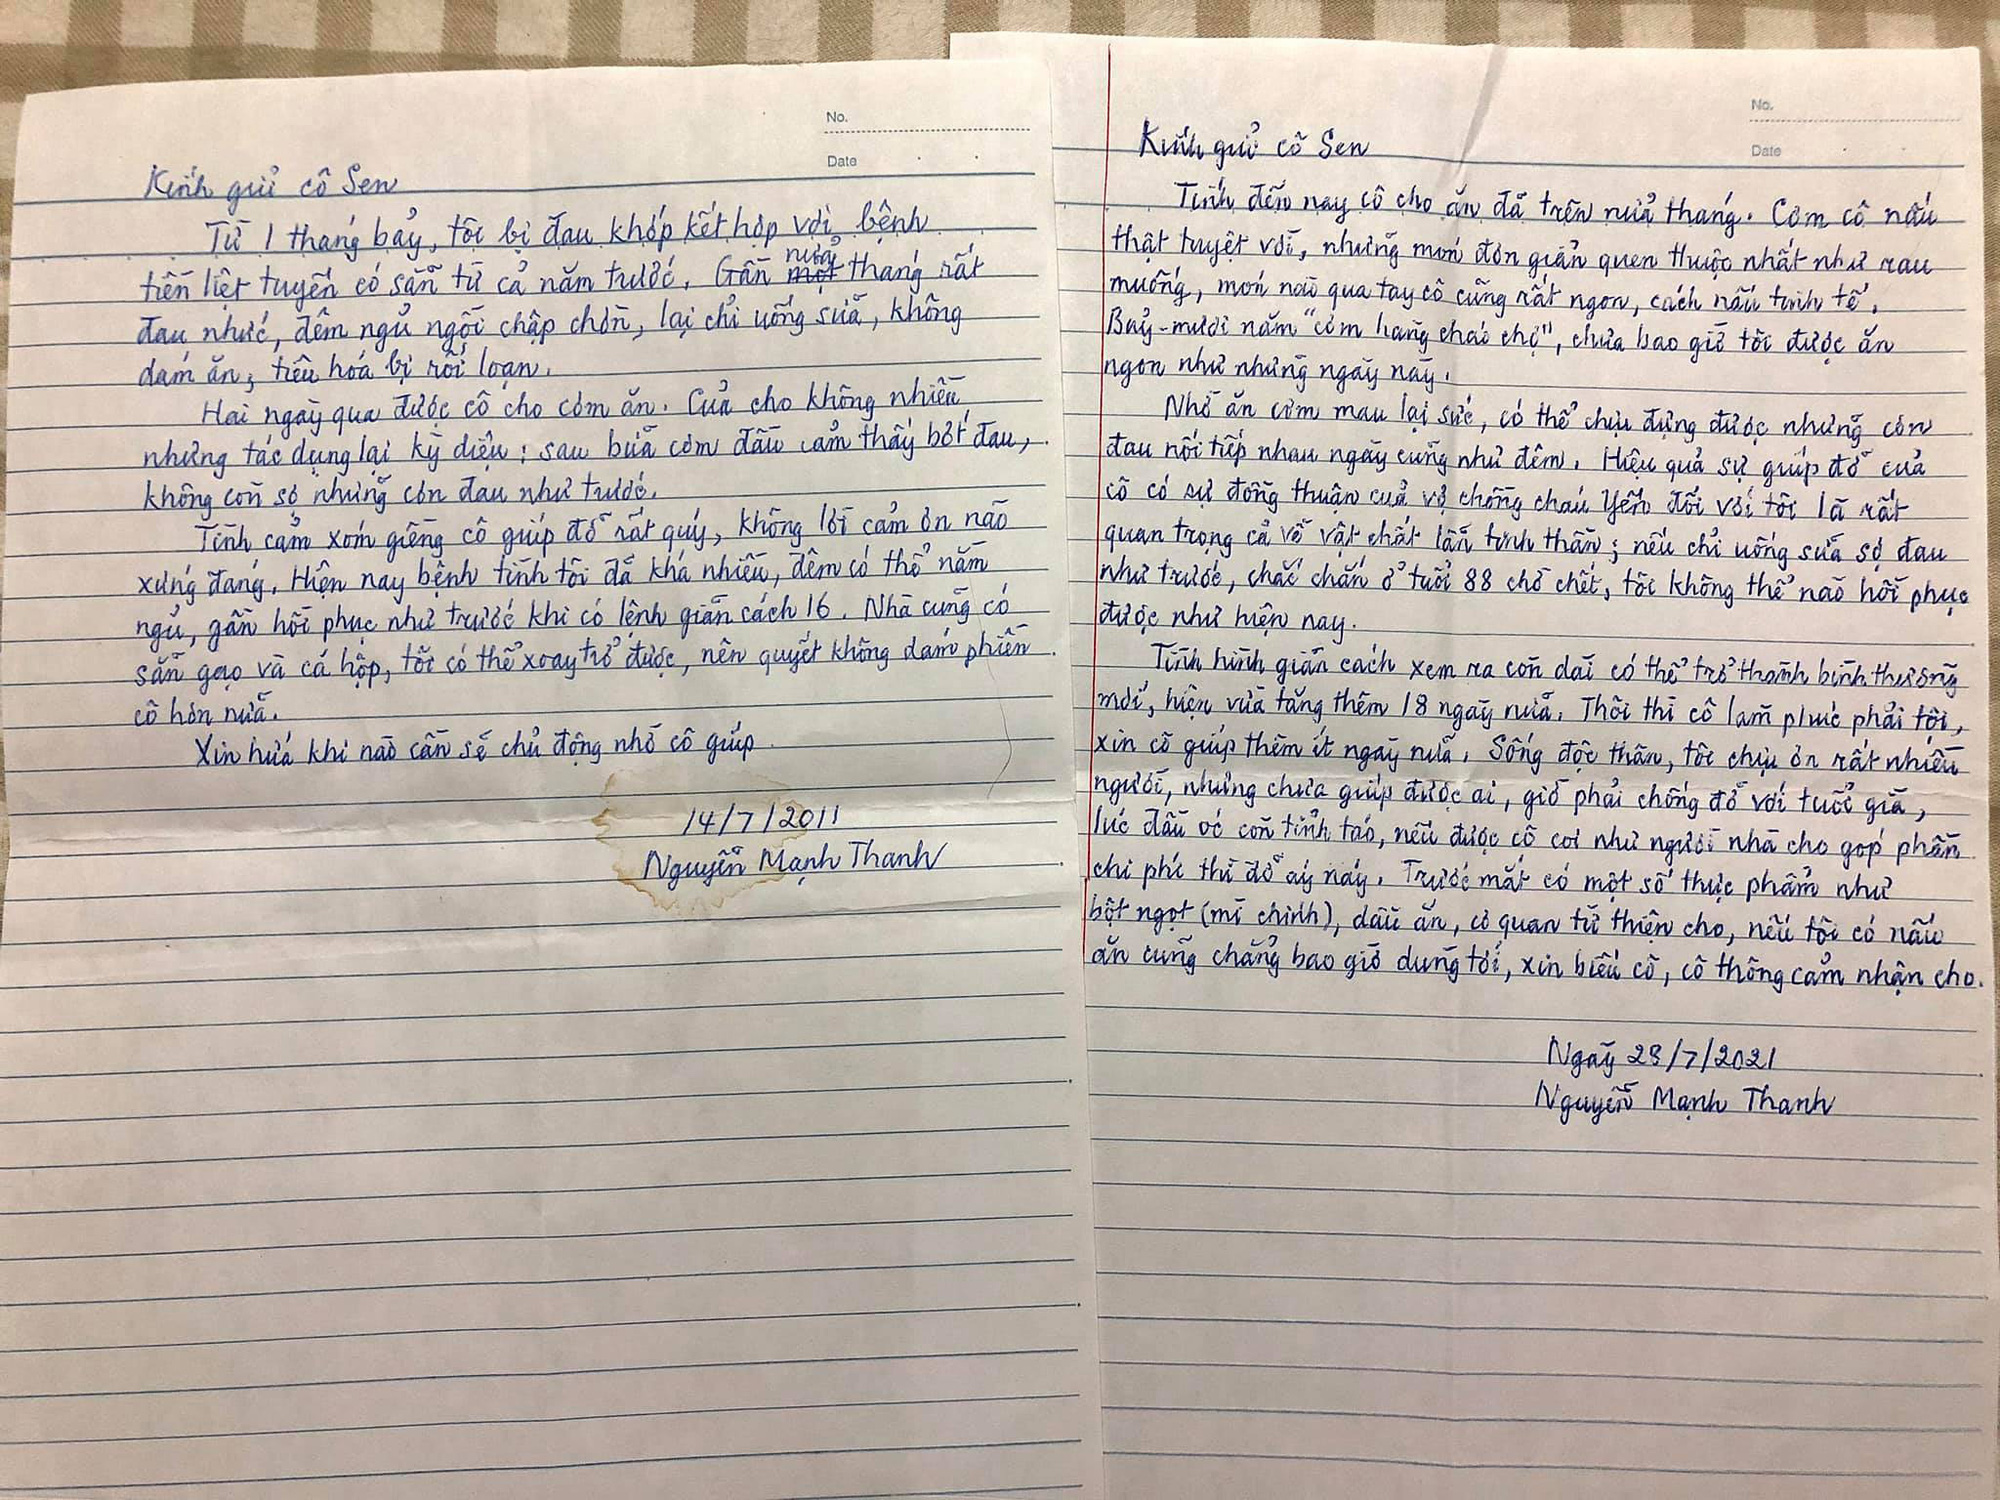 No.
Date
Kính gửi cô Sen
Từ 1 tháng bảy, tôi bị đau khớp kết hợp với bệnh
tiền liệt tuyến có sẵn từ cả năm trước. Gần một nửa tháng rất
đau nhức, đêm ngủ ngồi chập chờn, lại chỉ uống sữa, không
dám ăn; tiêu hoá bị rối loạn.
Hai ngày qua được cô cho cơm ăn. Của cho không nhiều
nhưng tác dụng lại kỳ diệu: sau bữa cơm đầu cảm thấy bớt đau,
không còn sợ những cơn đau như trước.
Tình cảm xóm giềng cô giúp đỡ rất quý, không lời cảm ơn nào
xứng đáng. Hiện nay bệnh tình tôi đã khá nhiều, đêm có thể nằm
ngủ, gần hồi phục như trước khi có lệnh giãn cách 16. Nhà cũng có
sẵn gạo và cá hộp, tôi có thể xoay trở được, nên quyết không dám phiền
cô hơn nữa.
Xin hứa khi nào cần sẽ chủ động nhờ cô giúp.
14/7/2011
Nguyễn Mạnh Thanh
No.
Date
Kính gửi cô Sen
Tính đến nay cô cho ăn đã trên nửa tháng. Cơm cô nấu
thật tuyệt vời, những món đơn giản quen thuộc nhất như rau
muống, món nào qua tay cô cũng rất ngon, cách nấu tinh tế.
Bảy-mươi năm "cơm hàng cháo chợ", chưa bao giờ tôi được ăn
ngon như những ngày này.
Nhờ ăn cơm mau lại sức, có thể chịu đựng được những cơn
đau nối tiếp nhau ngày cũng như đêm. Hiệu quả sự giúp đỡ của
cô có sự đồng thuận của vợ chồng cháu Yến đối với tôi là rất
quan trọng cả về vật chất lẫn tinh thần; nếu chỉ uống sữa sợ đau
như trước, chắc chắn ở tuổi 88 chờ chết, tôi không thể nào hồi phục
được như hiện nay.
Tình hình giãn cách xem ra còn dài có thể trở thành bình thường
mới, hiện vừa tăng thêm 18 ngày nữa. Thôi thì cô làm phúc phải tội,
xin cô giúp thêm ít ngày nữa. Sống độc thân, tôi chịu ơn rất nhiều
người, nhưng chưa giúp được ai, giờ phải chống đỡ với tuổi già,
lúc đầu óc còn tỉnh táo, nếu được cô coi như người nhà cho góp phần
chi phí thì đỡ áy náy. Trước mắt có một số thực phẩm như
bột ngọt (mì chính), dầu ăn, cơ quan từ thiện cho, nếu tôi có nấu
ăn cũng chẳng bao giờ dùng tới, xin biếu cô, cô thông cảm nhận cho.
Ngày 28/7/2021
Nguyễn Mạnh Thanh